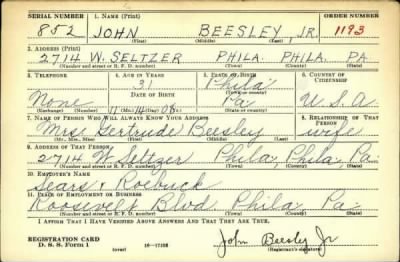 SERIAL NUMBER 1. NAME (Print) ORDER NUMBER
852 JOHN BEESLEY JR. 1193
(First) (Middle) (Last)
2. ADDRESS (Print)
2714 W. SELTZER PHILA. PHILA. PA
(Number and street or R. F. D. number) (Town) (County) (State)
3. TELEPHONE 4. AGE IN YEARS 5. PLACE OF BIRTH 6. COUNTRY OF CITIZENSHIP
31 Phila
DATE OF BIRTH (Town or county)
None 11 08 Pa U.S.A.
(Exchange) (Number) (Mo.) (Day) (Yr.) (State or country)
7. NAME OF PERSON WHO WILL ALWAYS KNOW YOUR ADDRESS 8. RELATIONSHIP OF THAT PERSON
Mrs. Gertrude Beesley wife
(Mr., Mrs., Miss) (First) (Middle) (Last)
9. ADDRESS OF THAT PERSON
2714 W Seltzer Phila, Phila Pa
(Number and street or R. F. D. number) (Town) (County) (State)
10. EMPLOYER'S NAME
Sears & Roebuck
11. PLACE OF EMPLOYMENT OR BUSINESS
Roosevelt Blvd. Phila Pa.
(Number and street or R. F. D. number) (Town) (County) (State)
I AFFIRM THAT I HAVE VERIFIED ABOVE ANSWERS AND THAT THEY ARE TRUE.
REGISTRATION CARD
D. S. S. Form 1 (over) John Beesley Jr
(Registrant's signature)